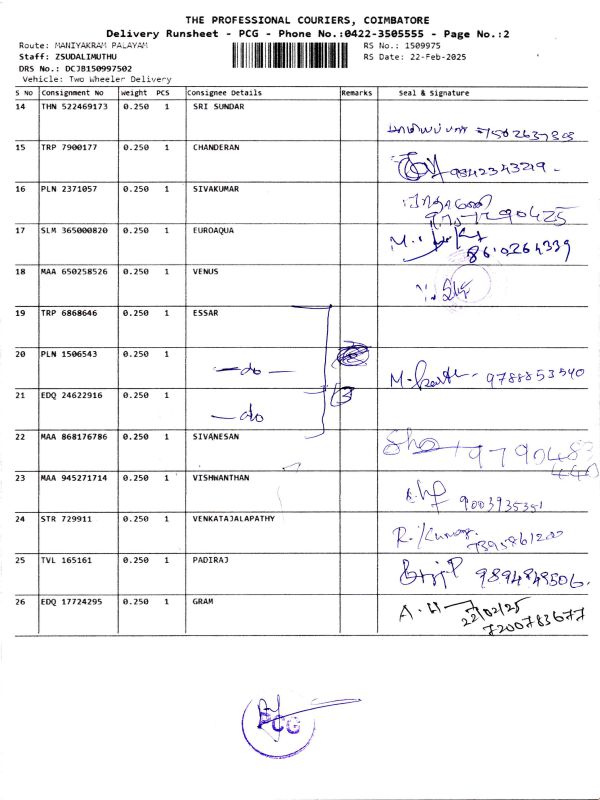 THE PROFESSIONAL COURIERS, COIMBATORE
Delivery Runsheet - PCG - Phone No.:0422-3505555 - Page No.:2
Route: MANIYAKRAM PALAYAM RS No.: 1509975
Staff: ZSUDALIMUTHU RS Date: 22-Feb-2025
DRS No.: DCJB150997502
Vehicle: Two Wheeler Delivery
S No Consignment No Weight PCS Consignee Details Remarks Seal & Signature
14 THN 522469173 0.250 1 SRI SUNDAR
15 TRP 7900177 0.250 1 CHANDERAN
9842343219
16 PLN 2371057 0.250 1 SIVAKUMAR
17 SLM 365000820 0.250 1 EUROAQUA
8610264339
18 MAA 650258526 0.250 1 VENUS
19 TRP 6868646 0.250 1 ESSAR
20 PLN 1506543 0.250 1
—do— 9788853540
21 EDQ 24622916 0.250 1 3
—do
22 MAA 868176786 0.250 1 SIVANESAN
9790483
23 MAA 945271714 0.250 1 VISHWANTHAN
9003935351
24 STR 729911 0.250 1 VENKATAJALAPATHY
R. Kumar
25 TVL 165161 0.250 1 PADIRAJ
9894848506.
26 EDQ 17724295 0.250 1 GRAM
22/02/25
7200783677
PCG